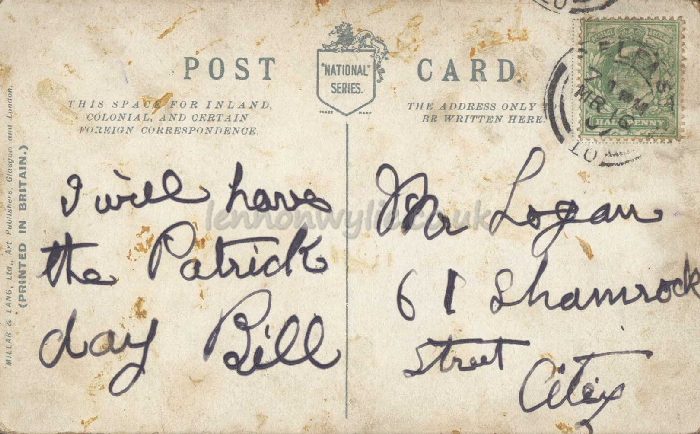 POST CARD.
"NATIONAL"
SERIES.
THIS SPACE FOR INLAND,
COLONIAL, AND CERTAIN
FOREIGN CORRESPONDENCE.
THE ADDRESS ONLY
BE WRITTEN HERE
MILLAR & LANG, Ltd., Art Publishers, Glasgow and London.
(PRINTED IN BRITAIN.)
I will have
the Patrick
day Bill
Mr Logan
61 Shamrock
Street
City
lennonwylie.co.uk
BELFAST
MR 16
HALFPENNY